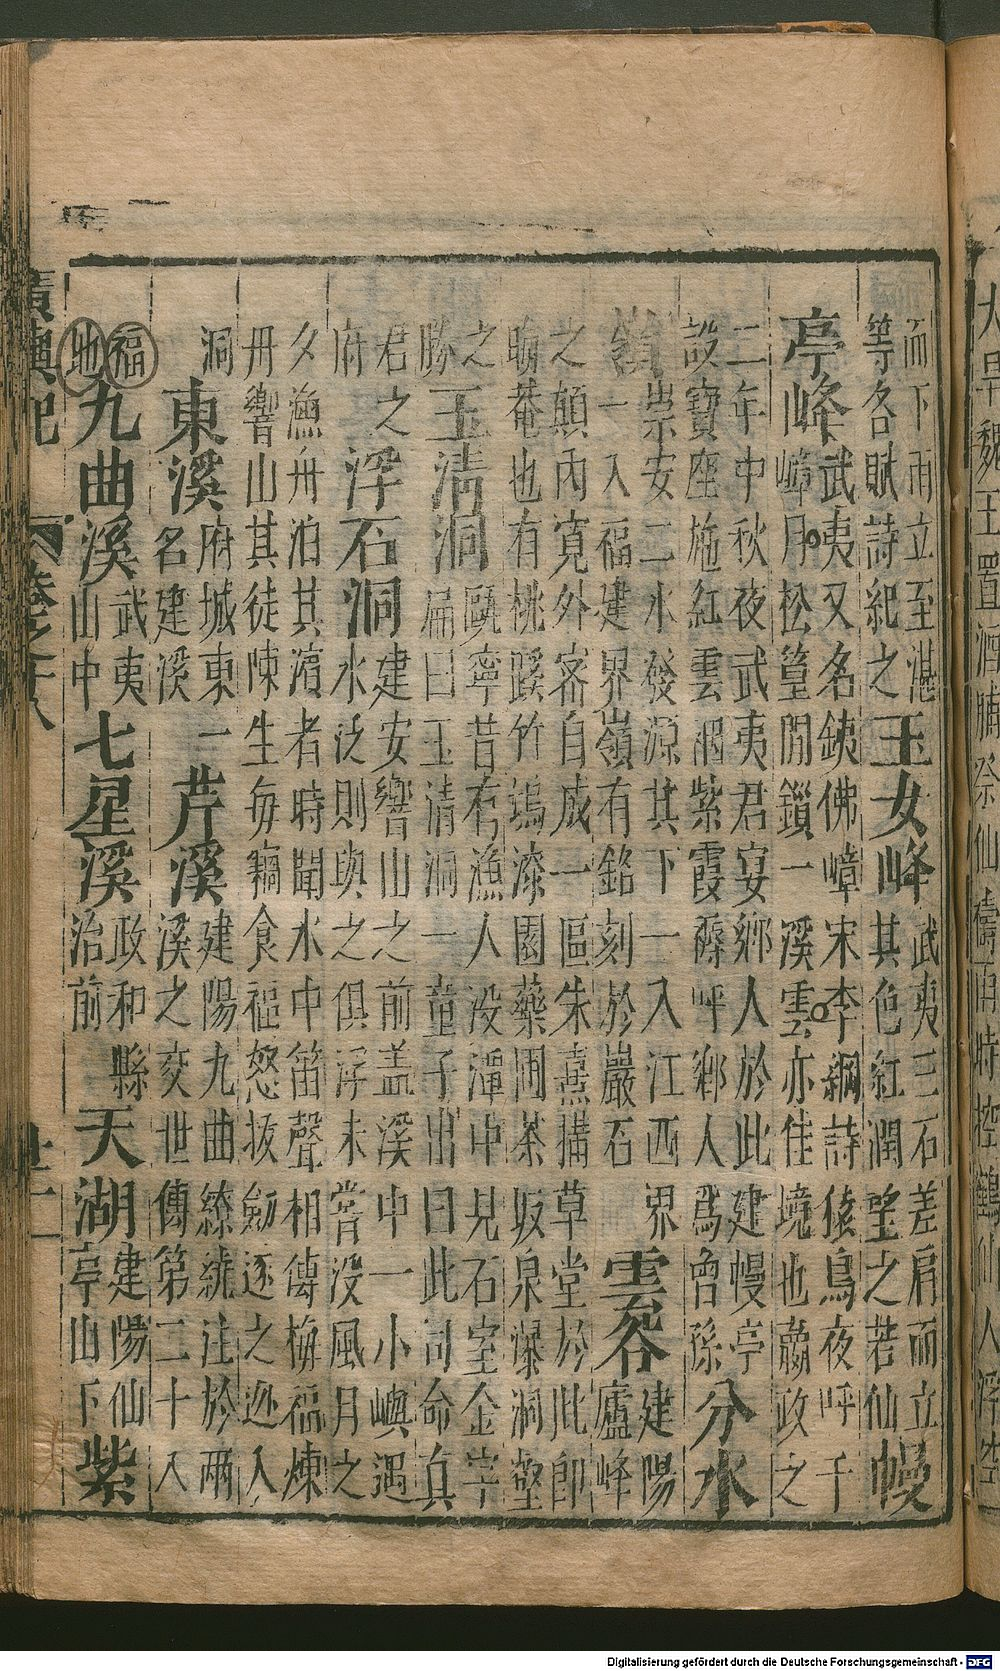 而下雨立至湛等各賦詩紀之玉女峰武夷三石差肩而立其色紅潤望之若仙幔
亭峰武夷又名鐵佛嶂宋李綱詩猿鳥夜呼千嶂月松篁閒鎖一溪雲亦佳境也蕭政之
二年中秋夜武夷君宴鄉人於此建幔亭設寶座施紅雲裀紫霞褥呼鄉人爲曾孫分水
嶺崇安二水發源其下一入江西界一入福建界嶺有銘刻於巖石雲谷建陽廬峰
之顛內寬外密自成一區朱熹搆草堂於此即晦菴也有桃蹊竹塢漆園藥圃茶坂泉瀑洞壑
之勝玉清洞甌寧昔有漁人没潭中見石室金字扁曰玉清洞一童子出曰此司命真
君之府浮石洞建安響山之前盖溪中一小嶼遇水泛則與之俱浮未嘗没風月之
夕漁舟泊其濱者時聞水中笛聲相傳梅福煉丹響山其徒陳生每竊食福怒拔劍逐之迯入
洞東溪府城東一名建溪芹溪建陽九曲繚繞注於兩溪之交世傳第二十八
福地九曲溪武夷山中七星溪政和縣治前天湖建陽仙亭山下紫
廣輿記 卷之十八 廿一
Digitalisierung gefördert durch die Deutsche Forschungsgemeinschaft - DFG